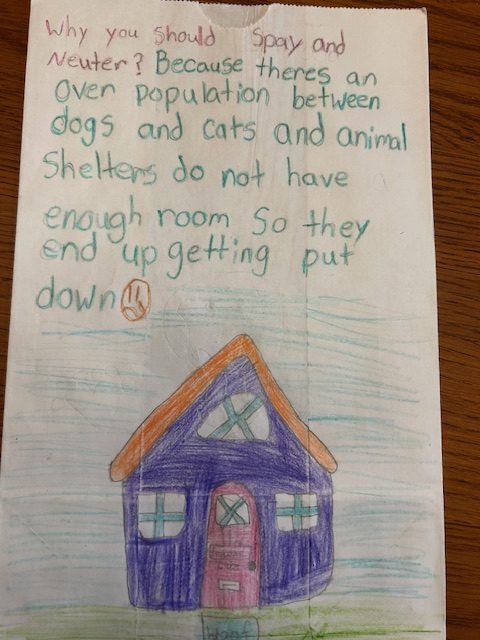 Why you should Spay and
Neuter? Because theres an
over population between
dogs and cats and animal
Shelters do not have
enough room So they
end up getting put
down
Woof